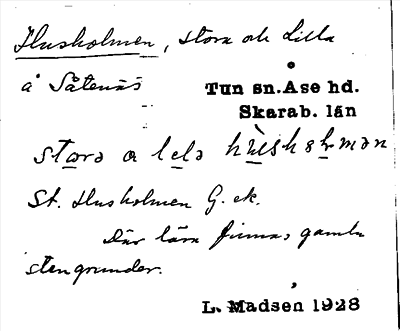 Husholmen, stora och Lilla
å Såtenäs
Tun sn. Åse hd.
Skarab. län
stora o lela hùsholman
St. Husholmen G. ek.
Där lära finnas gamla
stengrunder.
L. Madsen 1928